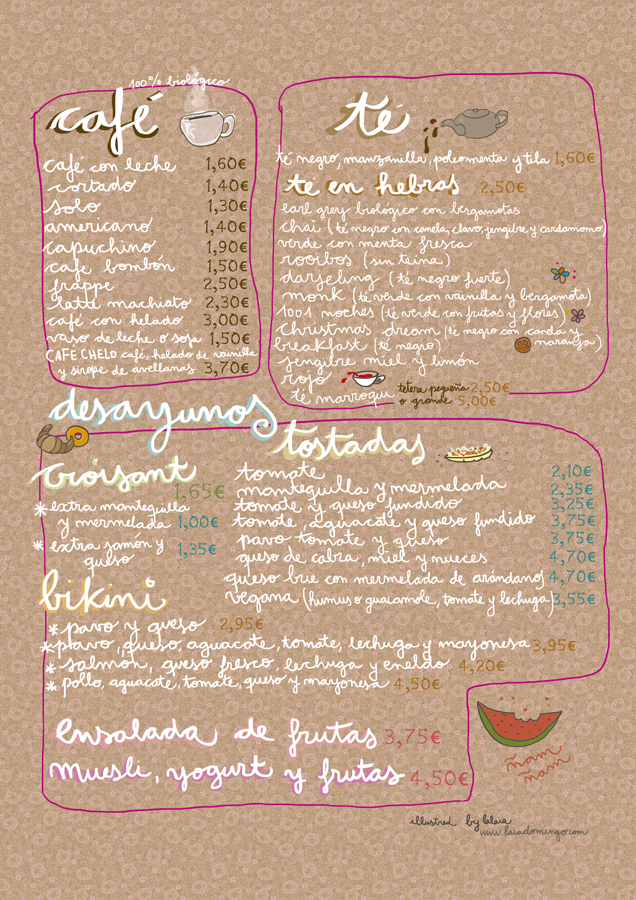 100% biológico
café
café con leche 1,60€
cortado 1,40€
solo 1,30€
americano 1,40€
capuchino 1,90€
cafe bombón 1,50€
frappe 2,50€
latte machiato 2,30€
café con helado 3,00€
vaso de leche o soja 1,50€
CAFE CHELO café, helado de vainilla
y sirope de avellanas 3,70€
té
té negro, manzanilla, poleomenta y tila 1,60€
te en hebras 2,50€
earl grey biológico con bergamotas
chai (té negro con canela, clavo, jengibre y cardamomo)
verde con menta fresca
rooibos (sin teina)
darjeling (té negro fuerte)
monk (té verde con vainilla y bergamota)
1001 noches (té verde con frutas y flores)
christmas dream (té negro con canela y
naranja)
breakfast (té negro)
jengibre miel y limón
rojo
té marroqui tetera pequeña 2,50€
o grande 5,00€
desayunos
croisant 1,65€
* extra mantequilla
y mermelada 1,00€
* extra jamón y
queso 1,35€
tostadas
tomate 2,10€
mantequilla y mermelada 2,35€
tomate y queso fundido 3,25€
tomate, aguacate y queso fundido 3,75€
pavo tomate y queso 3,75€
queso de cabra, miel y nueces 4,70€
queso brie con mermelada de arándanos 4,70€
vegana (humus o guacamole, tomate y lechuga) 3,55€
bikini
* pavo y queso 2,95€
* pavo, queso, aguacate, tomate, lechuga y mayonesa 3,95€
* salmón, queso fresco, lechuga y eneldo 4,20€
* pollo, aguacate, tomate, queso y mayonesa 4,50€
ensalada de frutas 3,75€
muesli, yogurt y frutas 4,50€
ñam
ñam
illustred by lalaia
www.laiadomingo.com